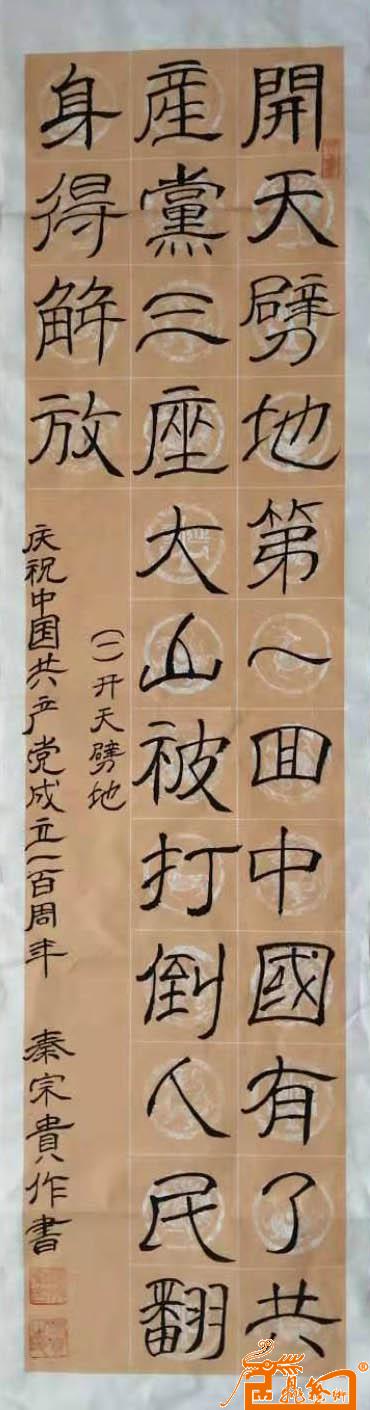 開天劈地第一回中國有了共
産黨三座大山被打倒人民翻
身得解放
(一)开天劈地
庆祝中国共产党成立一百周年 秦宗貴作書